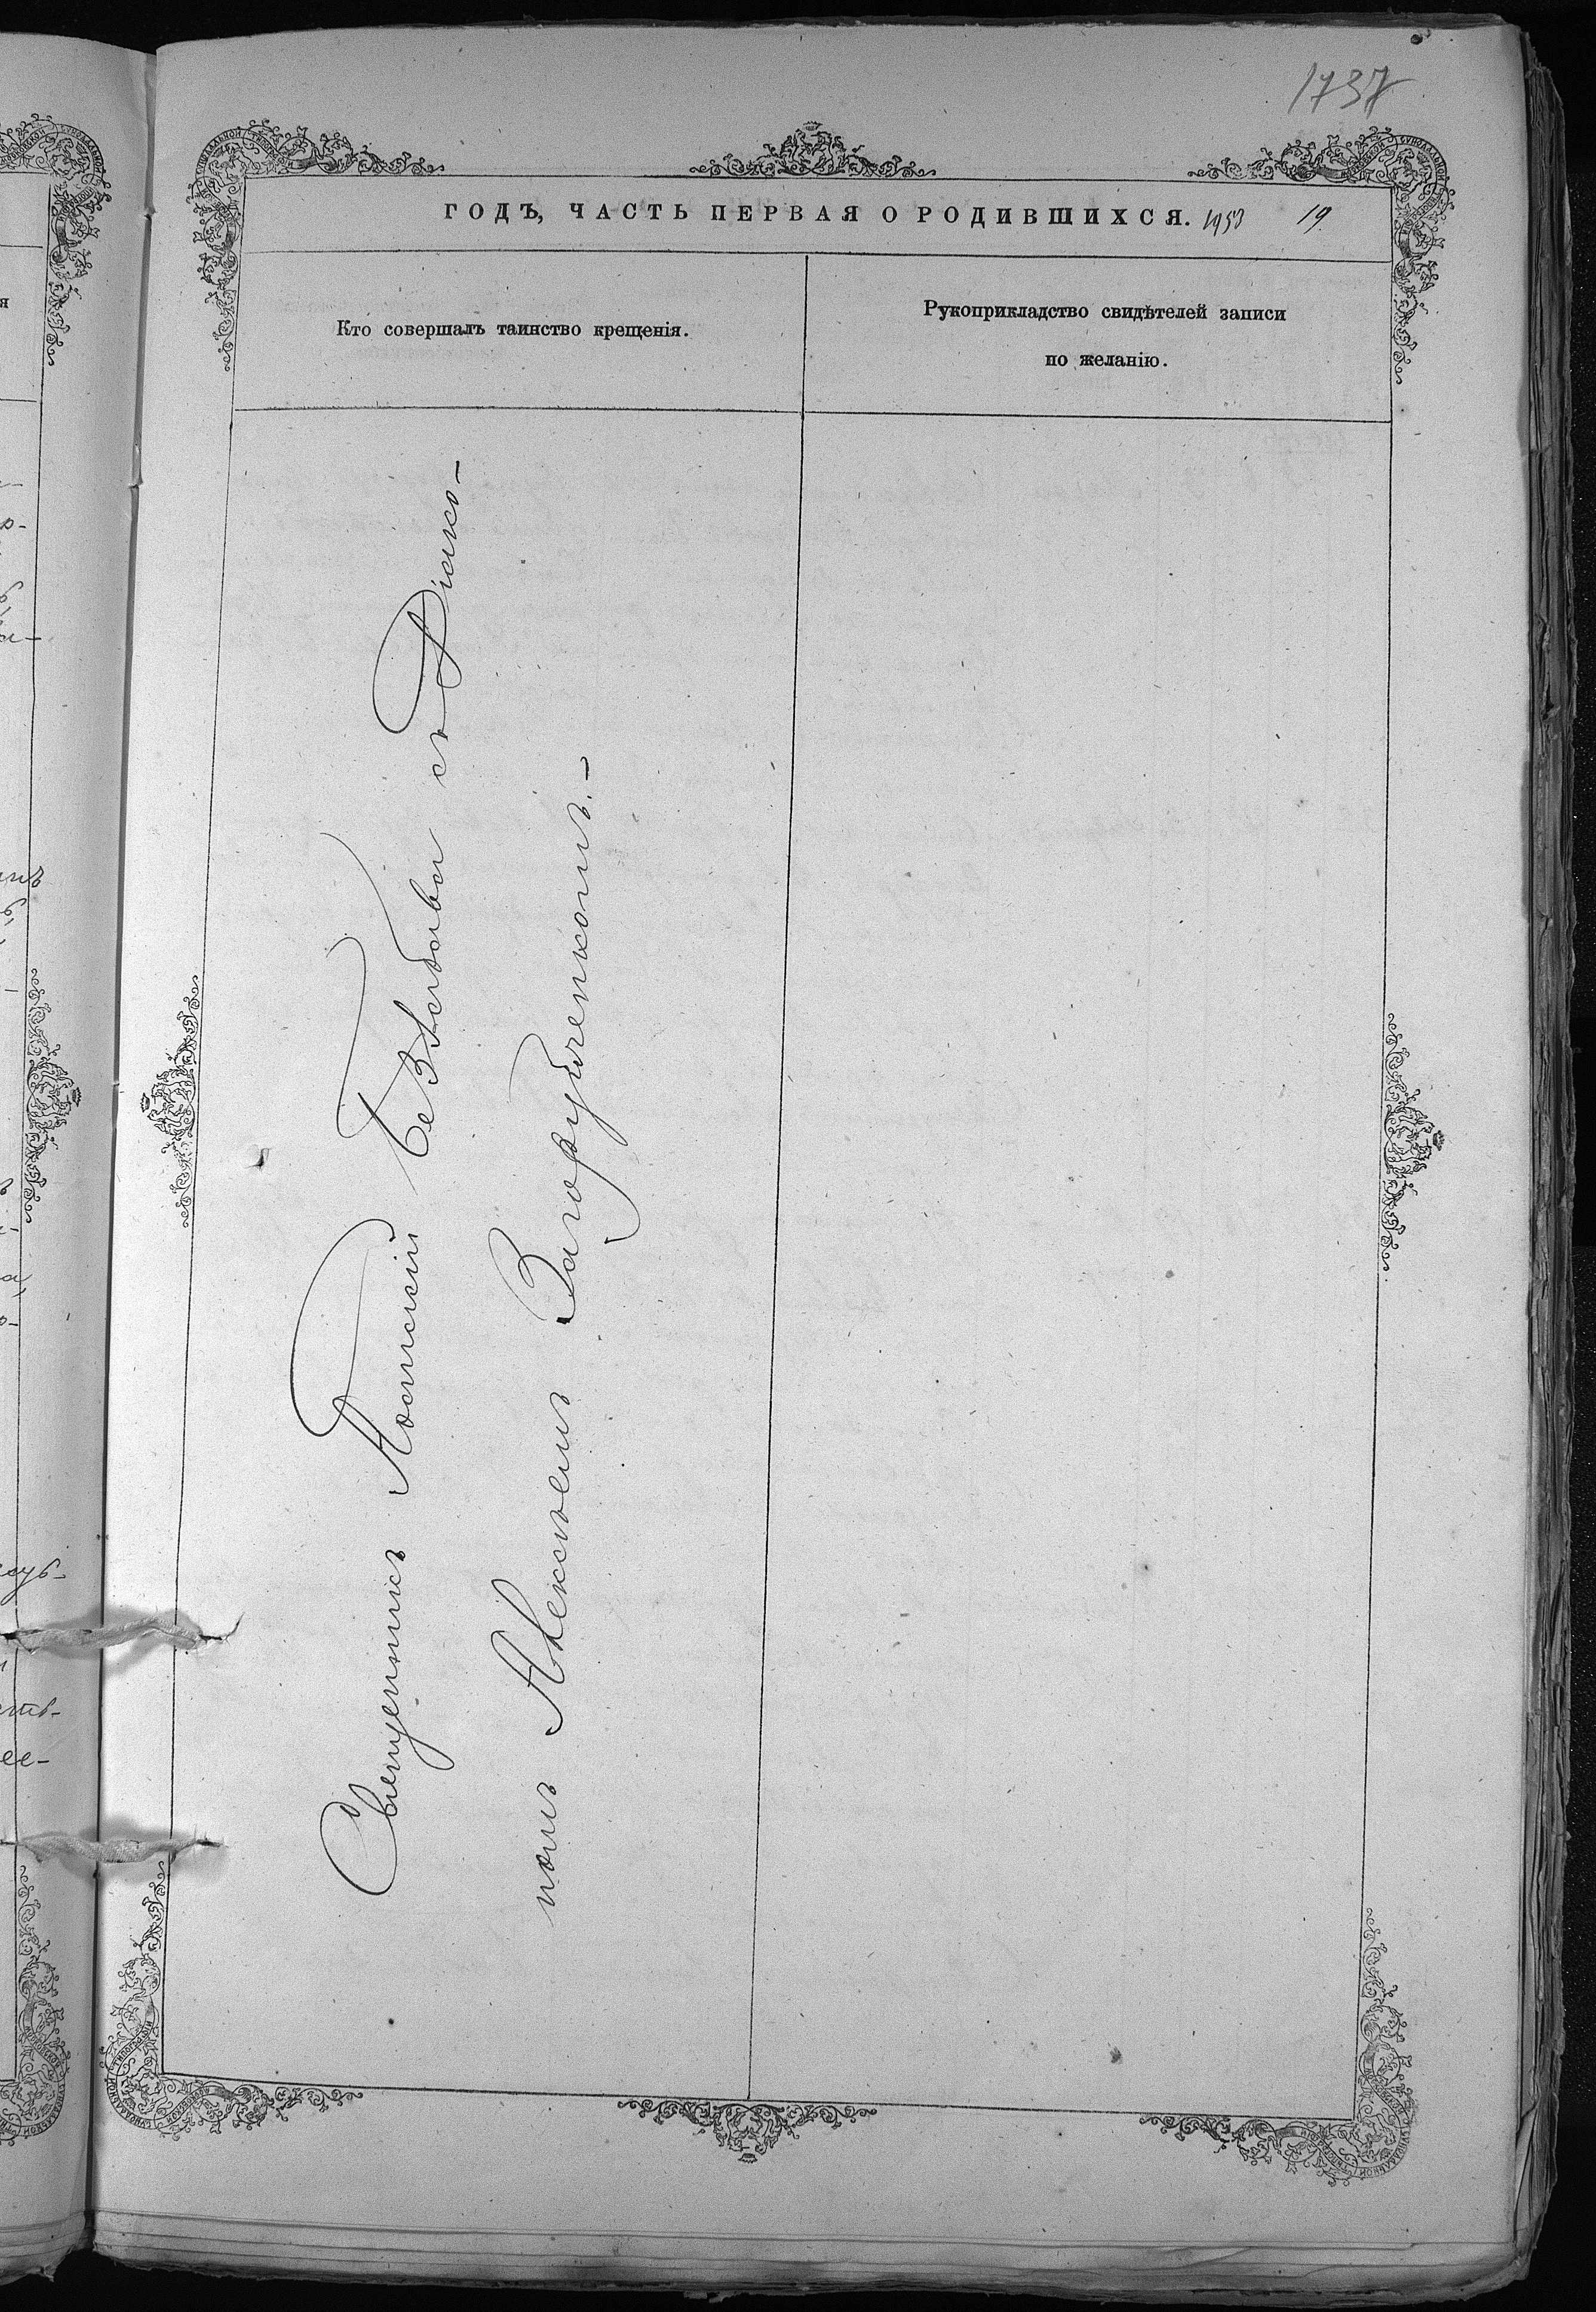 1737
ГОДЪ, ЧАСТЬ ПЕРВАЯ О РОДИВШИХСЯ. 1953 19.
Кто совершалъ таинство крещенія.
Рукоприкладство свидѣтелей записи
по желанію.
Священникъ с Діако-
номъ Алексѣемъ Загоруйченкомъ.-